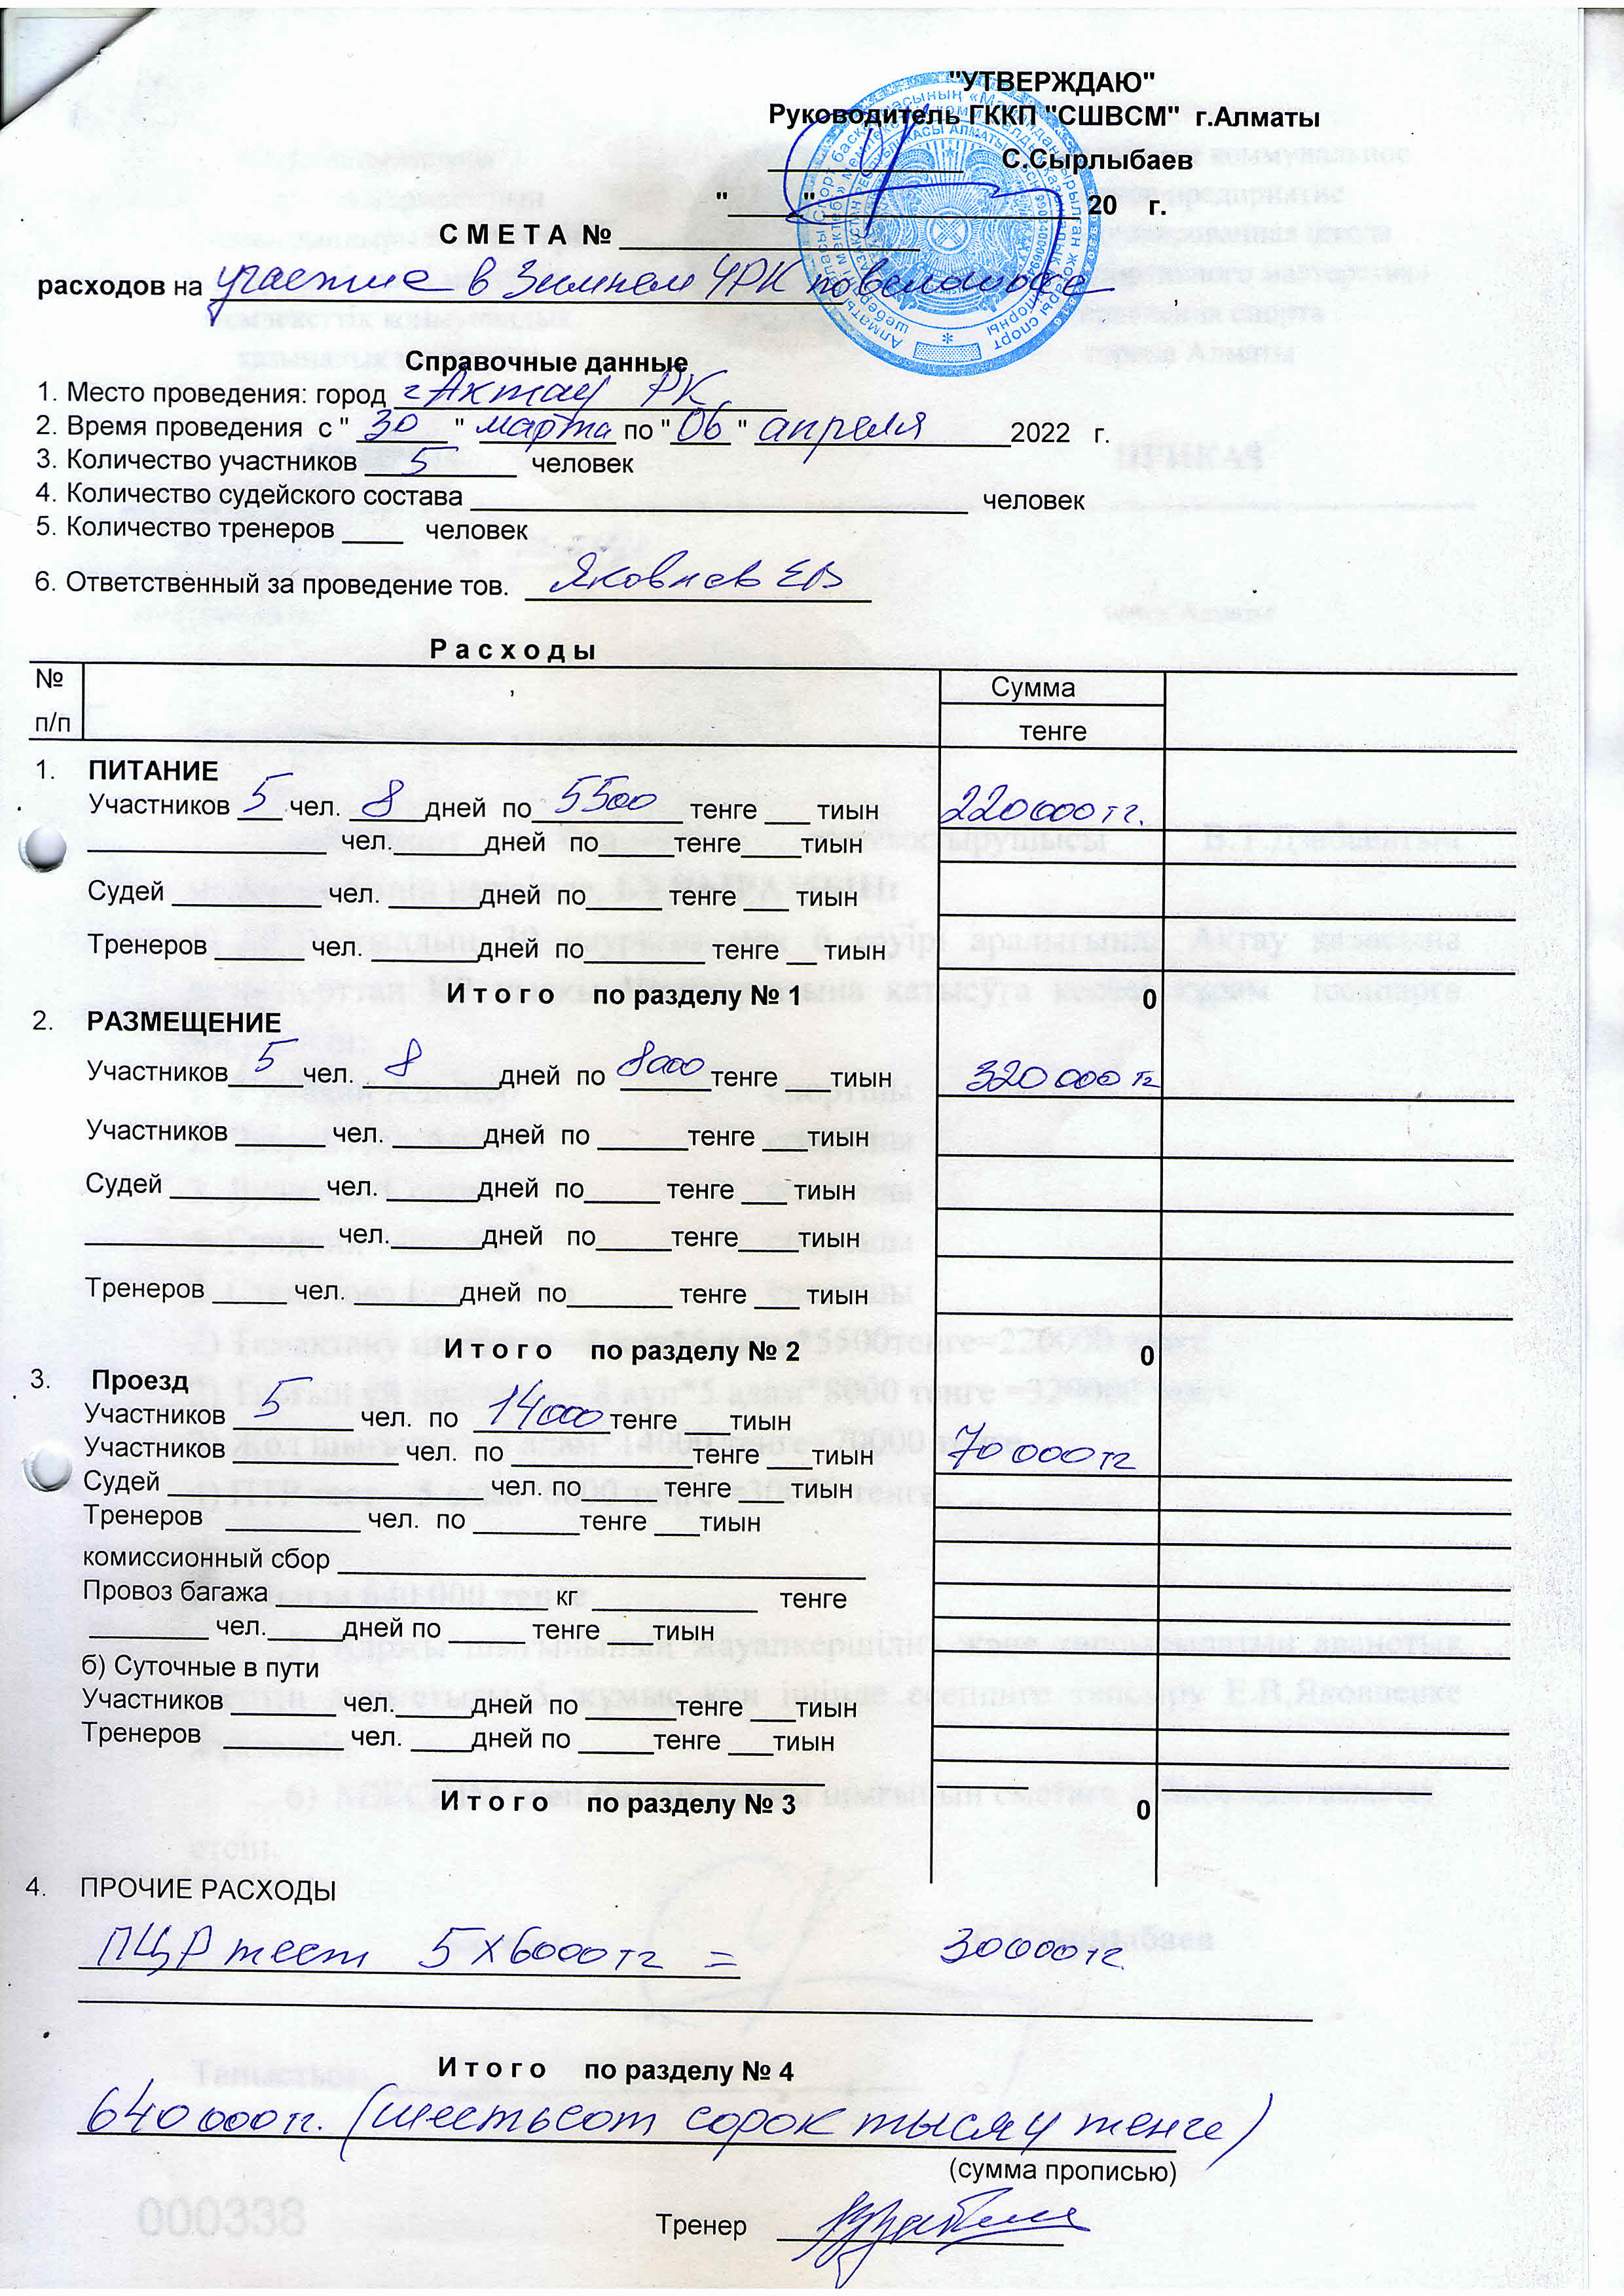 "УТВЕРЖДАЮ"
Руководитель ГККП "СШВСМ" г.Алматы
С.Сырлыбаев
"_____" __________________ 20 г.
С М Е Т А № ____________________
расходов на участие в Зимнем ЧРК по велошоссе
Справочные данные
1. Место проведения: город г Актау РК
2. Время проведения с " 30 " марта по " 06 " апреля 2022 г.
3. Количество участников 5 человек
4. Количество судейского состава ____________________ человек
5. Количество тренеров ____ человек
6. Ответственный за проведение тов. Яковлев ЕВ
Р а с х о д ы
№ п/п Сумма
тенге
1. ПИТАНИЕ
Участников 5 чел. 8 дней по 5500 тенге ___ тиын 220000 тг.
________________ чел.______дней по_____тенге____тиын
Судей __________ чел. ______дней по_____ тенге ___ тиын
Тренеров ______ чел. _______дней по________ тенге __ тиын
И т о г о по разделу № 1 0
2. РАЗМЕЩЕНИЕ
Участников 5 чел. 8 дней по 8000 тенге ___тиын 320 000 тг
Участников ______ чел. ______дней по ______тенге ___тиын
Судей __________ чел. ______дней по_____ тенге ___ тиын
________________ чел.______дней по_____тенге____тиын
Тренеров _____ чел. _______дней по_______ тенге ___ тиын
И т о г о по разделу № 2 0
3. Проезд
Участников 5 чел. по 14000 тенге ___тиын
Участников ___________ чел. по ____________тенге ___тиын 70 000 тг
Судей _____________________ чел. по_____ тенге ___ тиын
Тренеров _________ чел. по _______тенге ___тиын
комиссионный сбор ___________________________________
Провоз багажа __________________ кг ___________ тенге
________ чел._____дней по _____ тенге ___тиын
б) Суточные в пути
Участников _______ чел._____дней по ______тенге ___тиын
Тренеров ________ чел. ____дней по _____тенге ___тиын
И т о г о по разделу № 3 0
4. ПРОЧИЕ РАСХОДЫ
ПЦР тест 5 х 6000 тг = 30000 тг.
И т о г о по разделу № 4
640 000 тг. (шестьсот сорок тысяч тенге)
(сумма прописью)
Тренер
000338